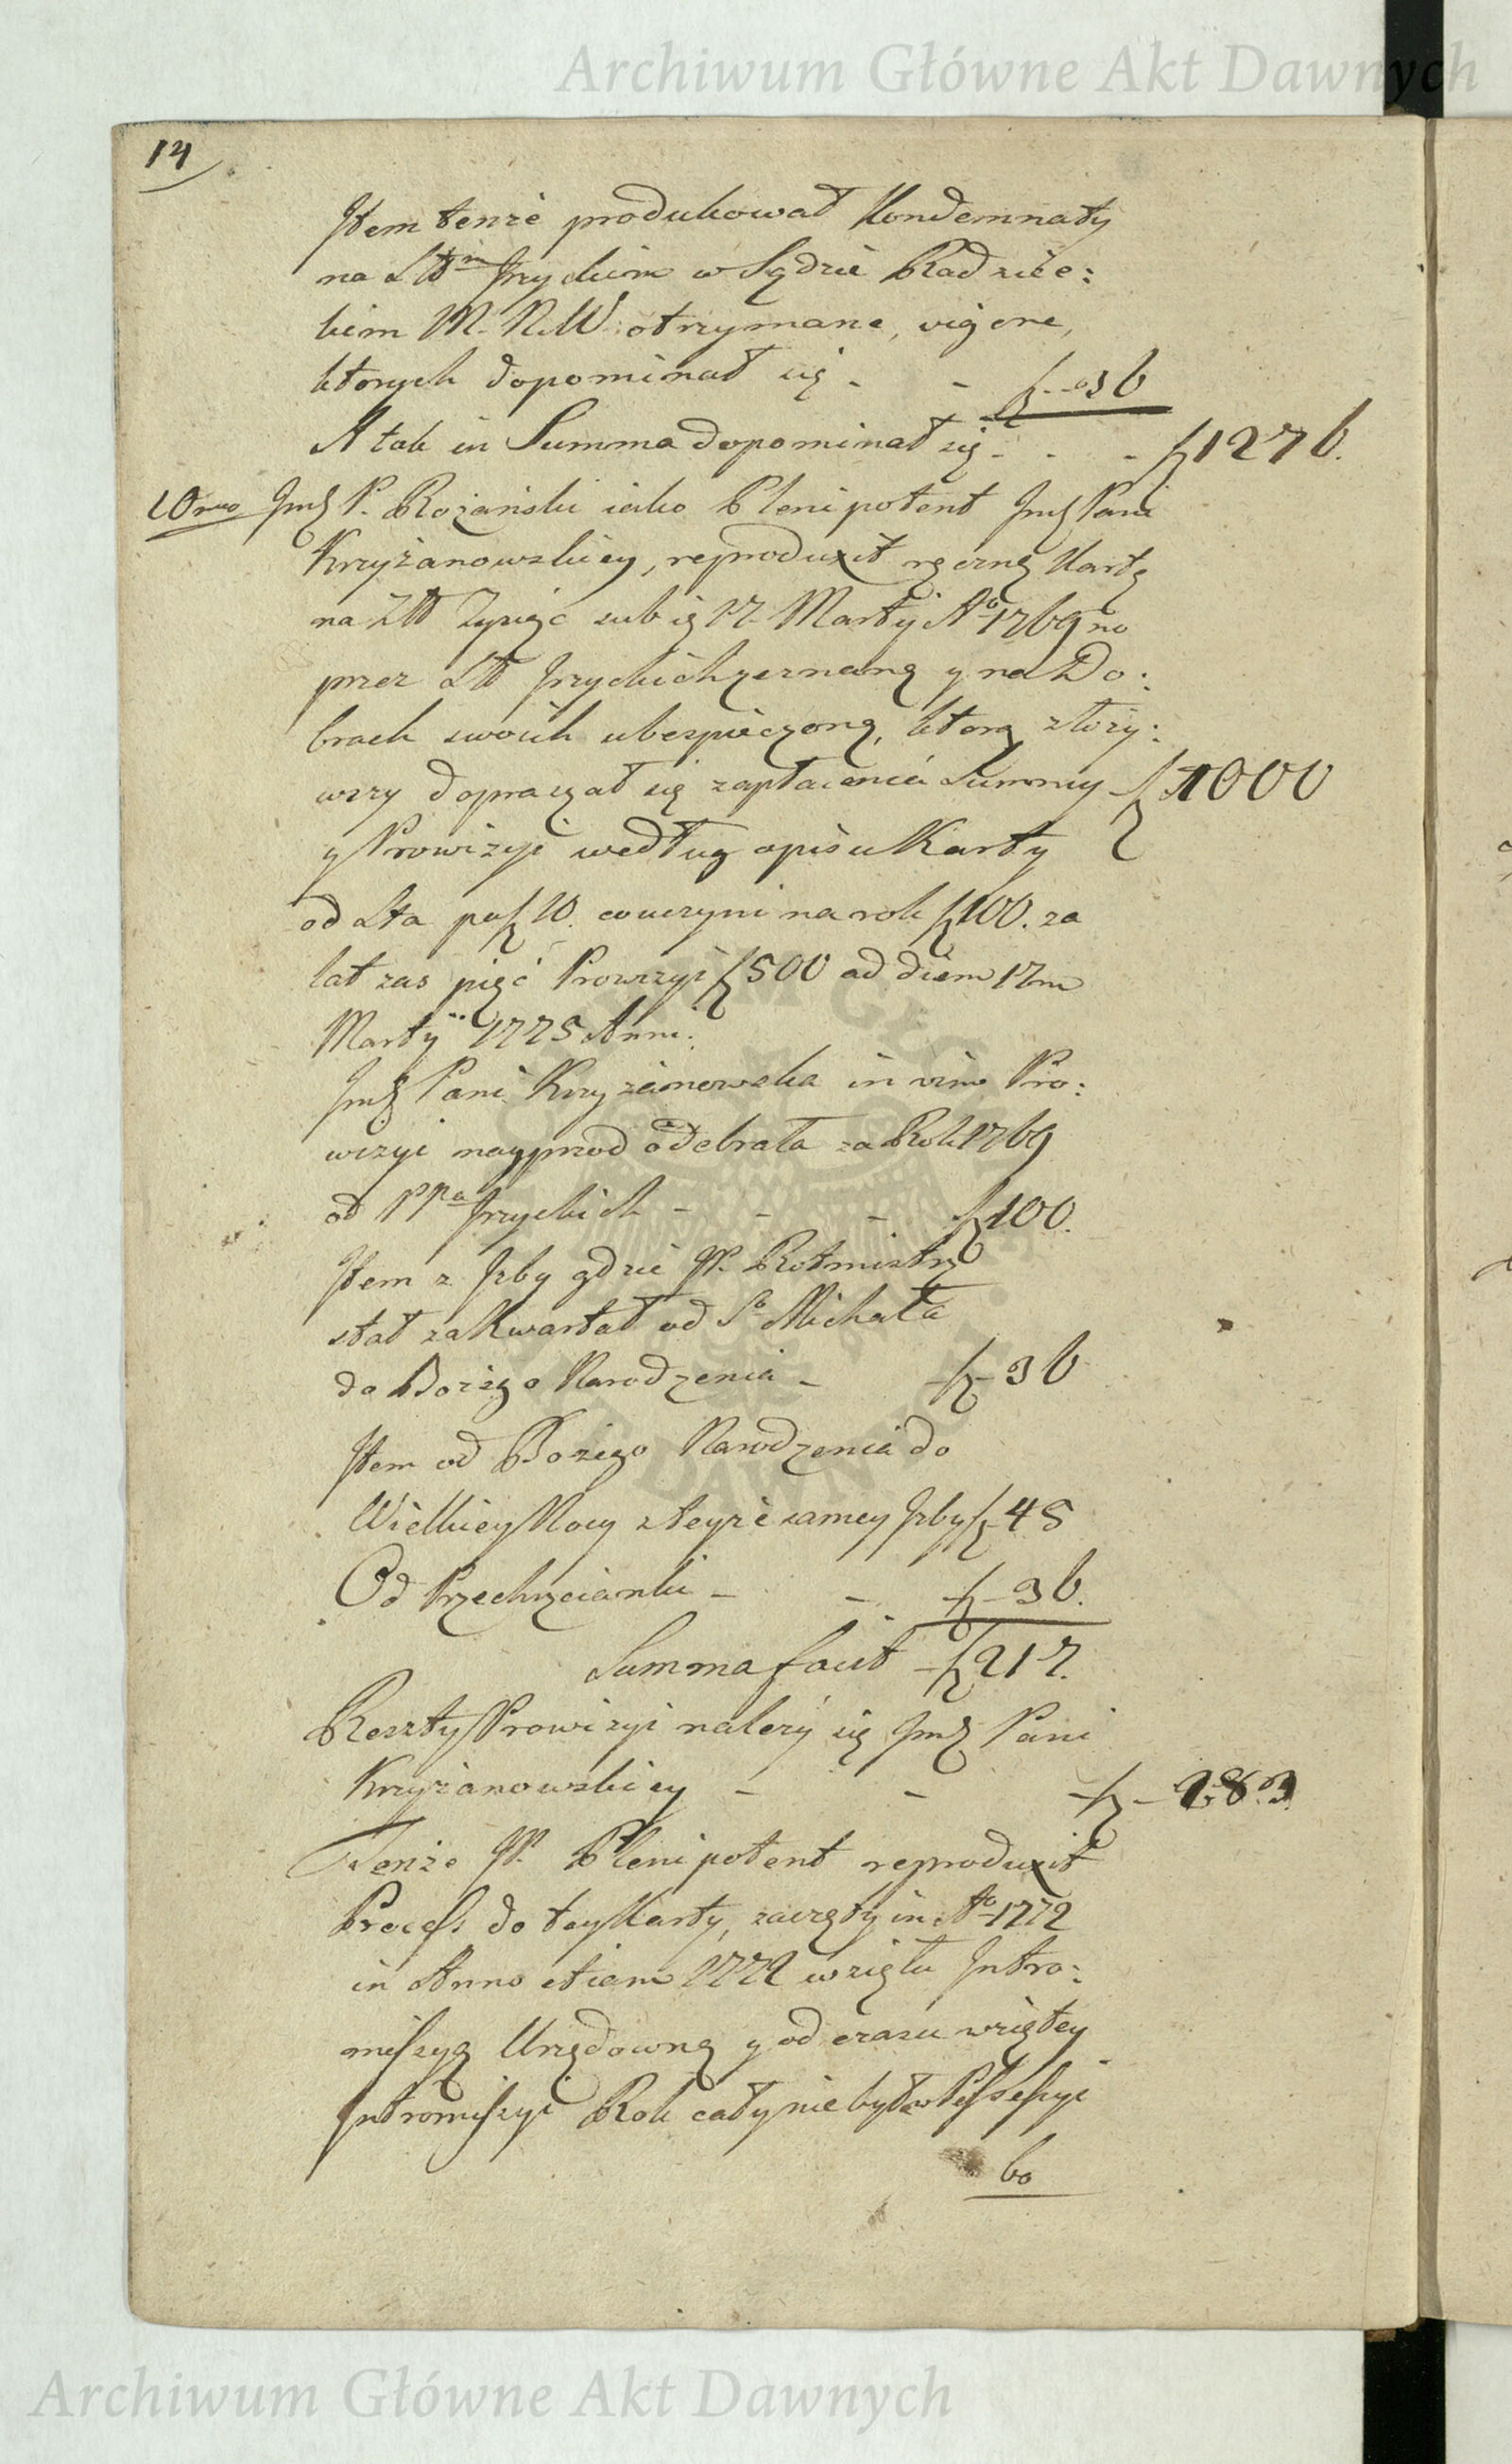 Archiwum Główne Akt Dawnych
14
Item tenże produkował Kondemnaty
na Jrzyckim w Sądzie Radziec:
kiem M. N. W. otrzymane, vigore,
ktorych dopominał się - - f - 36
A tak in Summa dopominał się - - - f 1276.
10mo Jmć P. Rozański iako Plenipotent Jmć Pani
Krzyżanowskiey, reproduxit ręczną Kartę
na Złł Tysiąc sub 17. Martij Ao 1769no
przez Jrzyckich zeznaną y na Do:
brach swoich ubezpieczoną, ktorą złoży:
wszy dopraszał się zapłacenia Summy f 1000
y Prowizyi według opisu Karty
od Sta po f 10. co uczyni na rok f 100. za
lat zas pięć Prowizyi f 500 ad diem 17m
Martij 1775 Anni.
Jmć Pani Krzyżanowska in vim Pro:
wizyi nayprzod odebrała za Rok 1769
od Jrzyckich - - - f 100.
Item z Jzby gdzie JP. Rotmistrz
stał za Kwartał od So Michała
do Bożego Narodzenia - f - 36
Item od Bożego Narodzenia do
Wielkiey Nocy z teyże samey Jzby f 45
Od Przechrzcianki - - f - 36.
Summa facit - f 217.
Reszty Prowizyi należy się Jmć Pani
Krzyżanowskiey - - f - 283
Tenże JP. Plenipotent reproduxit
Process do tey Karty, zaczęty in Ao 1772
in Anno etiam 1772 wziętu Intro:
missyą Urzędową y od czasu wziętey
Intromissyi Rok cały nie był w Possessyi
bo
Archiwum Główne Akt Dawnych